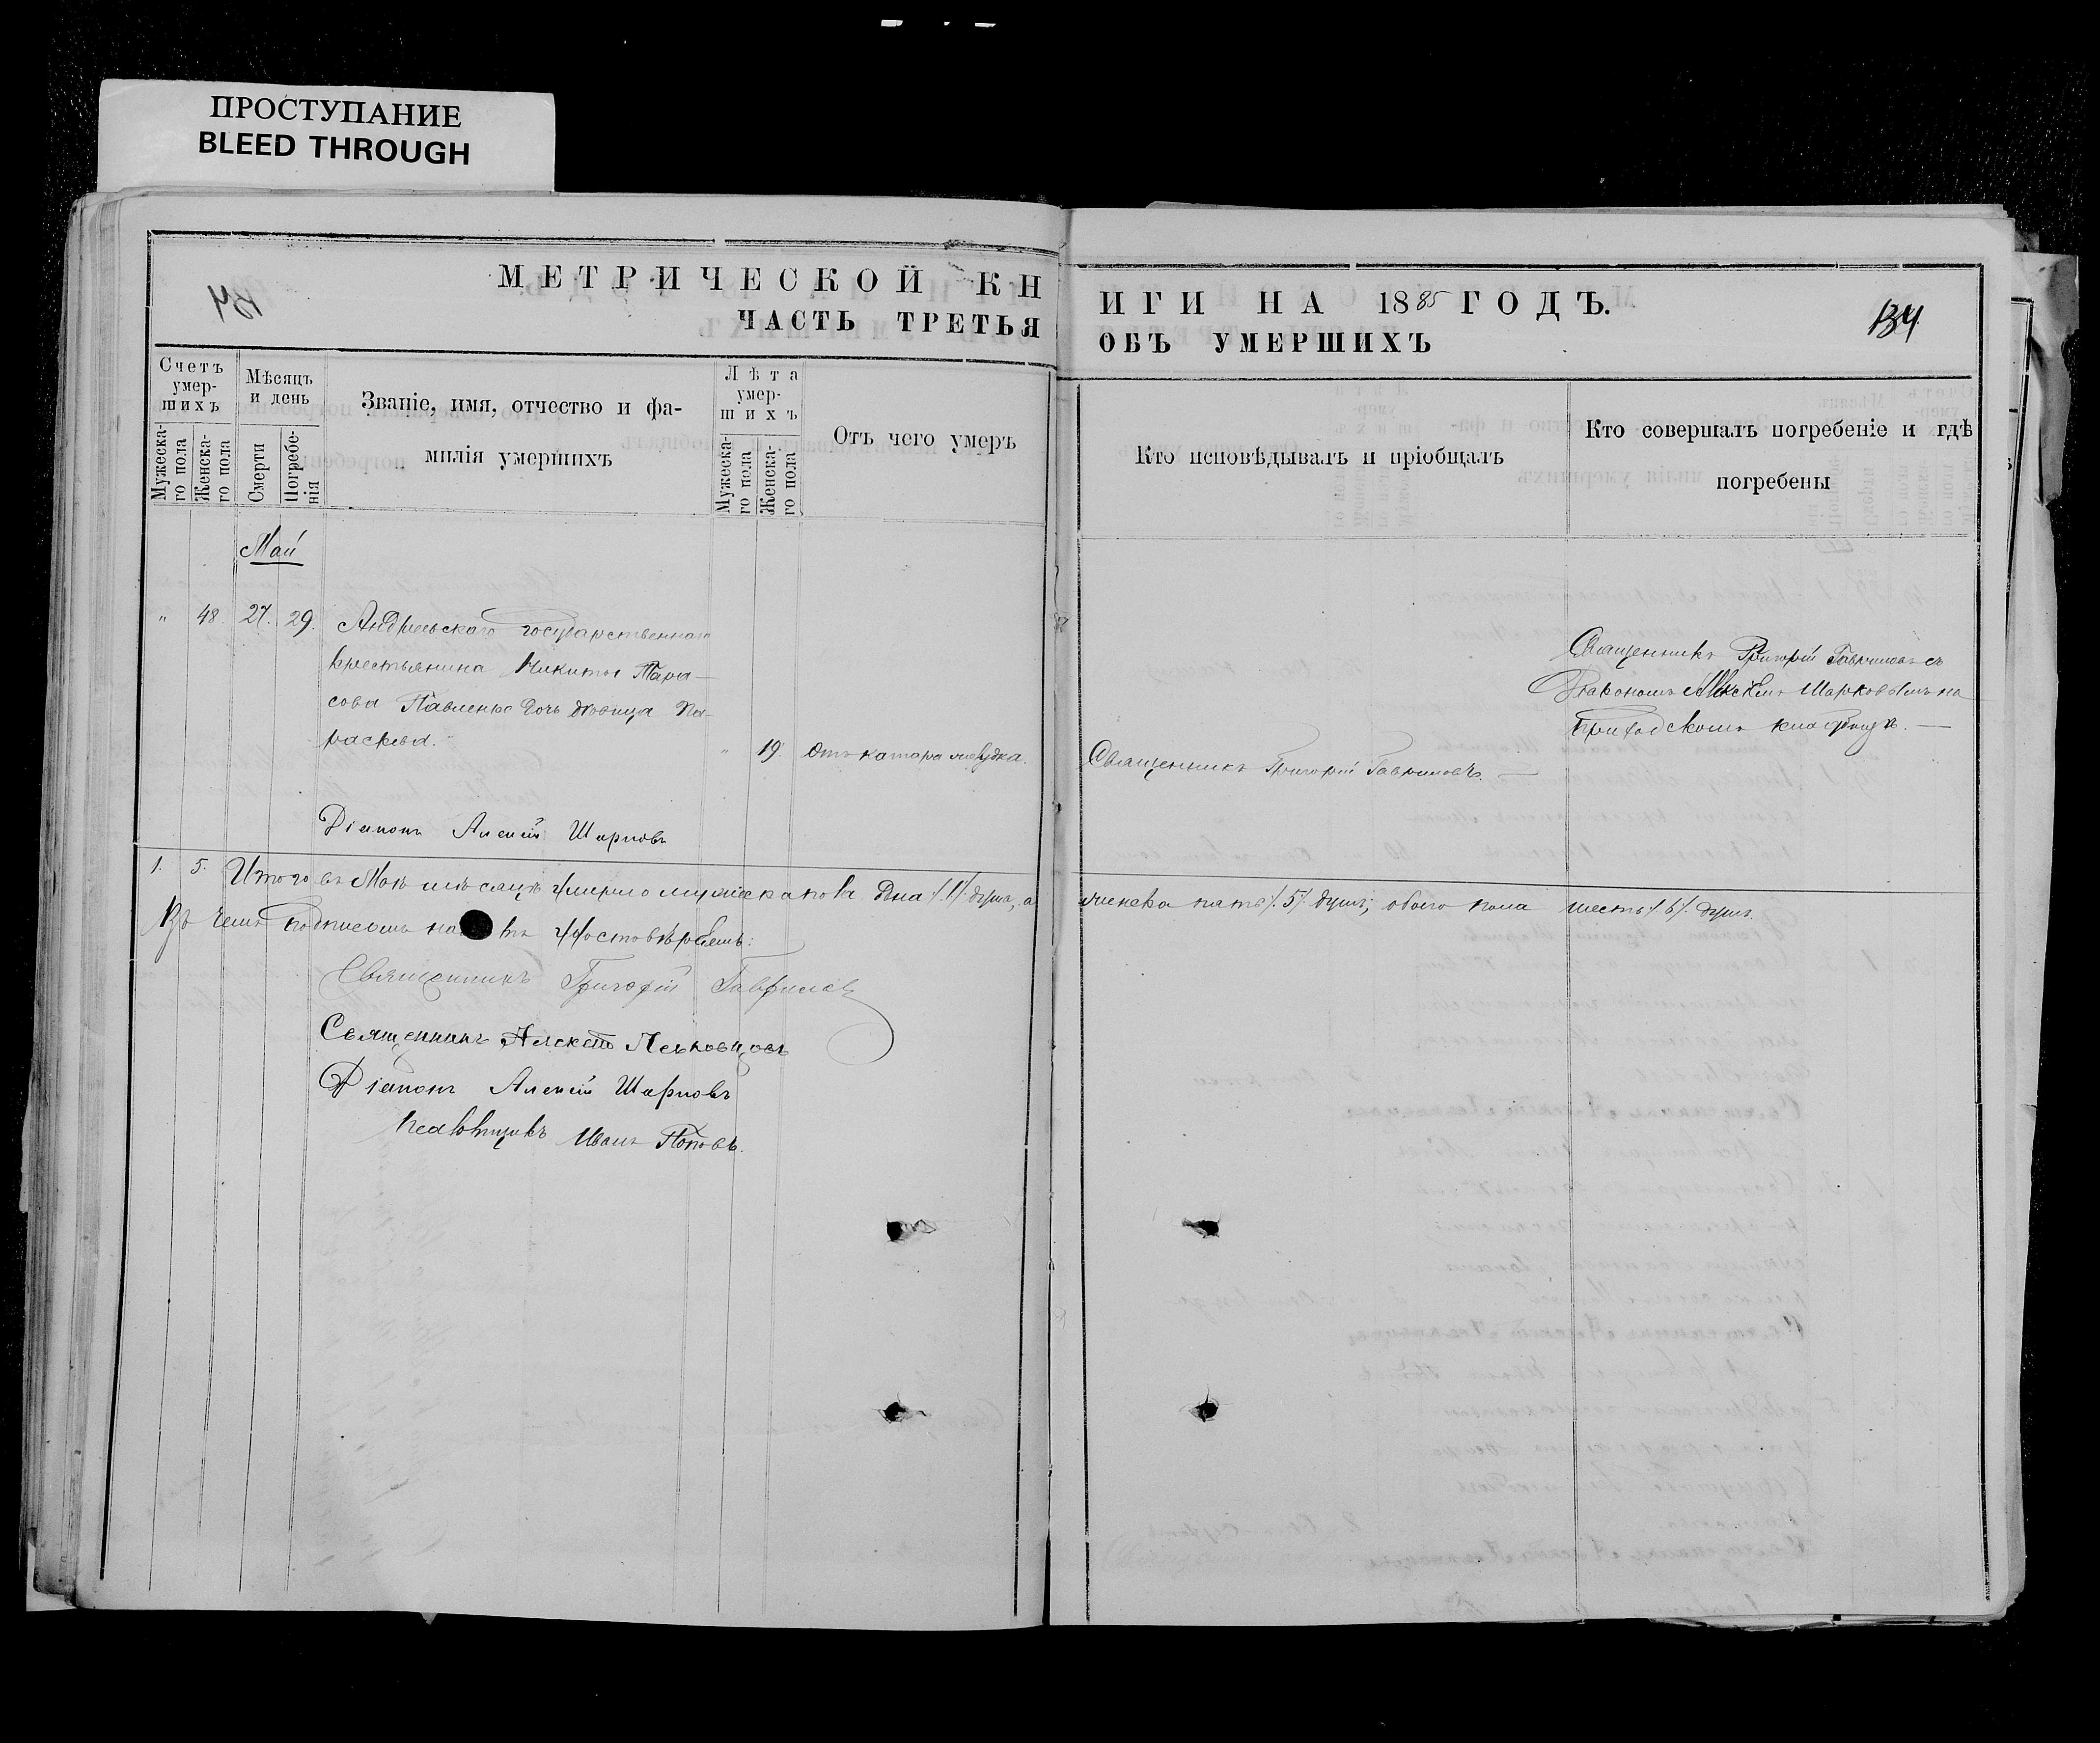 ПРОСТУПАНИЕ
BLEED THROUGH
МЕТРИЧЕСКОЙ КН
ЧАСТЬ ТРЕТЬЯ
Счетъ умер-
шихъ
Мужеска-
го пола
Женска-
го пола
Мѣсяцъ
и день
Смерти
Погребе-
нія
Званіе, имя, отчество и фа-
милія умершихъ
Лѣта
умер-
шихъ
Мужеска-
го пола
Женска-
го пола
Отъ чего умеръ
Май
" 48. 27. 29. Андреевскаго государственнаго
крестьянина Никиты Тара-
сова Павленко дочь девица Па-
раскева. " 19. Отъ катара желудка.
Діаконъ Алексій Шарковъ
1. 5. Итого въ Маѣ мѣсяцѣ умерло мужеска пола одна /.1/. душа, а
Въ чемъ подписомъ
Священникъ Григорій Гавриловъ
Священникъ Алексѣй
Діаконъ Алексій Шарковъ
Псаломщикъ Иванъ Поповъ.
ИГИ НА 1885 ГОДЪ.
ОБЪ УМЕРШИХЪ
134.
Кто исповѣдывалъ и пріобщалъ
Кто совершалъ погребеніе и гдѣ
погребены
Священникъ Григорій Гавриловъ съ
Діакономъ Алексѣемъ Шарковымъ на
приходскомъ кладбищѣ.
Священникъ Григорій Гавриловъ.
женска пять /.5/. душъ, обоего пола шесть /.6/. душъ.